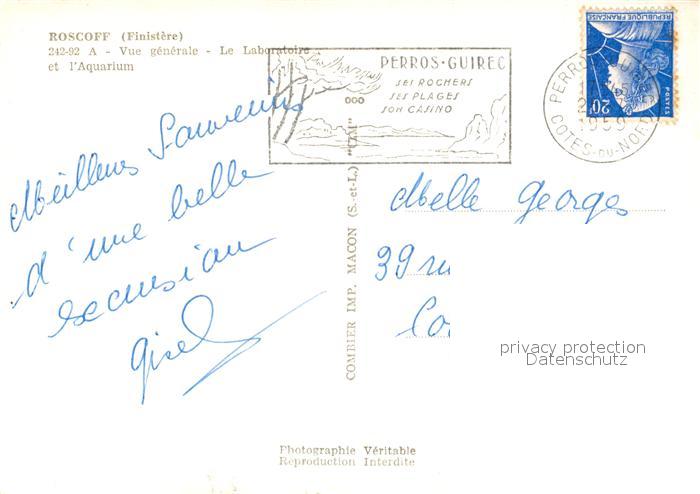 ROSCOFF (Finistère)
242-92 A - Vue générale - Le Laboratoire
et l'Aquarium
PERROS-GUIREC
SES ROCHERS
SES PLAGES
SON CASINO
REPUBLIQUE FRANÇAISE
20F
POSTES
PERROS-GUIREC
1959
COTES-DU-NORD
Meilleurs Souvenirs
d'une belle
excursion
Gisel
COMBIER IMP. MACON (S.-et-L.) "CIM"
Melle Georges
39 ru
Co
privacy protection
Datenschutz
Photographie Véritable
Reproduction Interdite